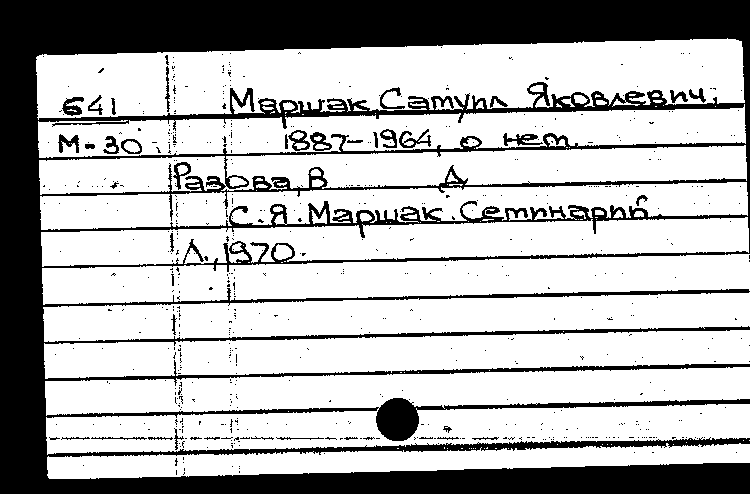 641 Маршак, Самуил Яковлевич.
М-30. 1887-1964, о нем.
Разова, В Д
С.Я. Маршак. Семинарий.
Л., 1970.